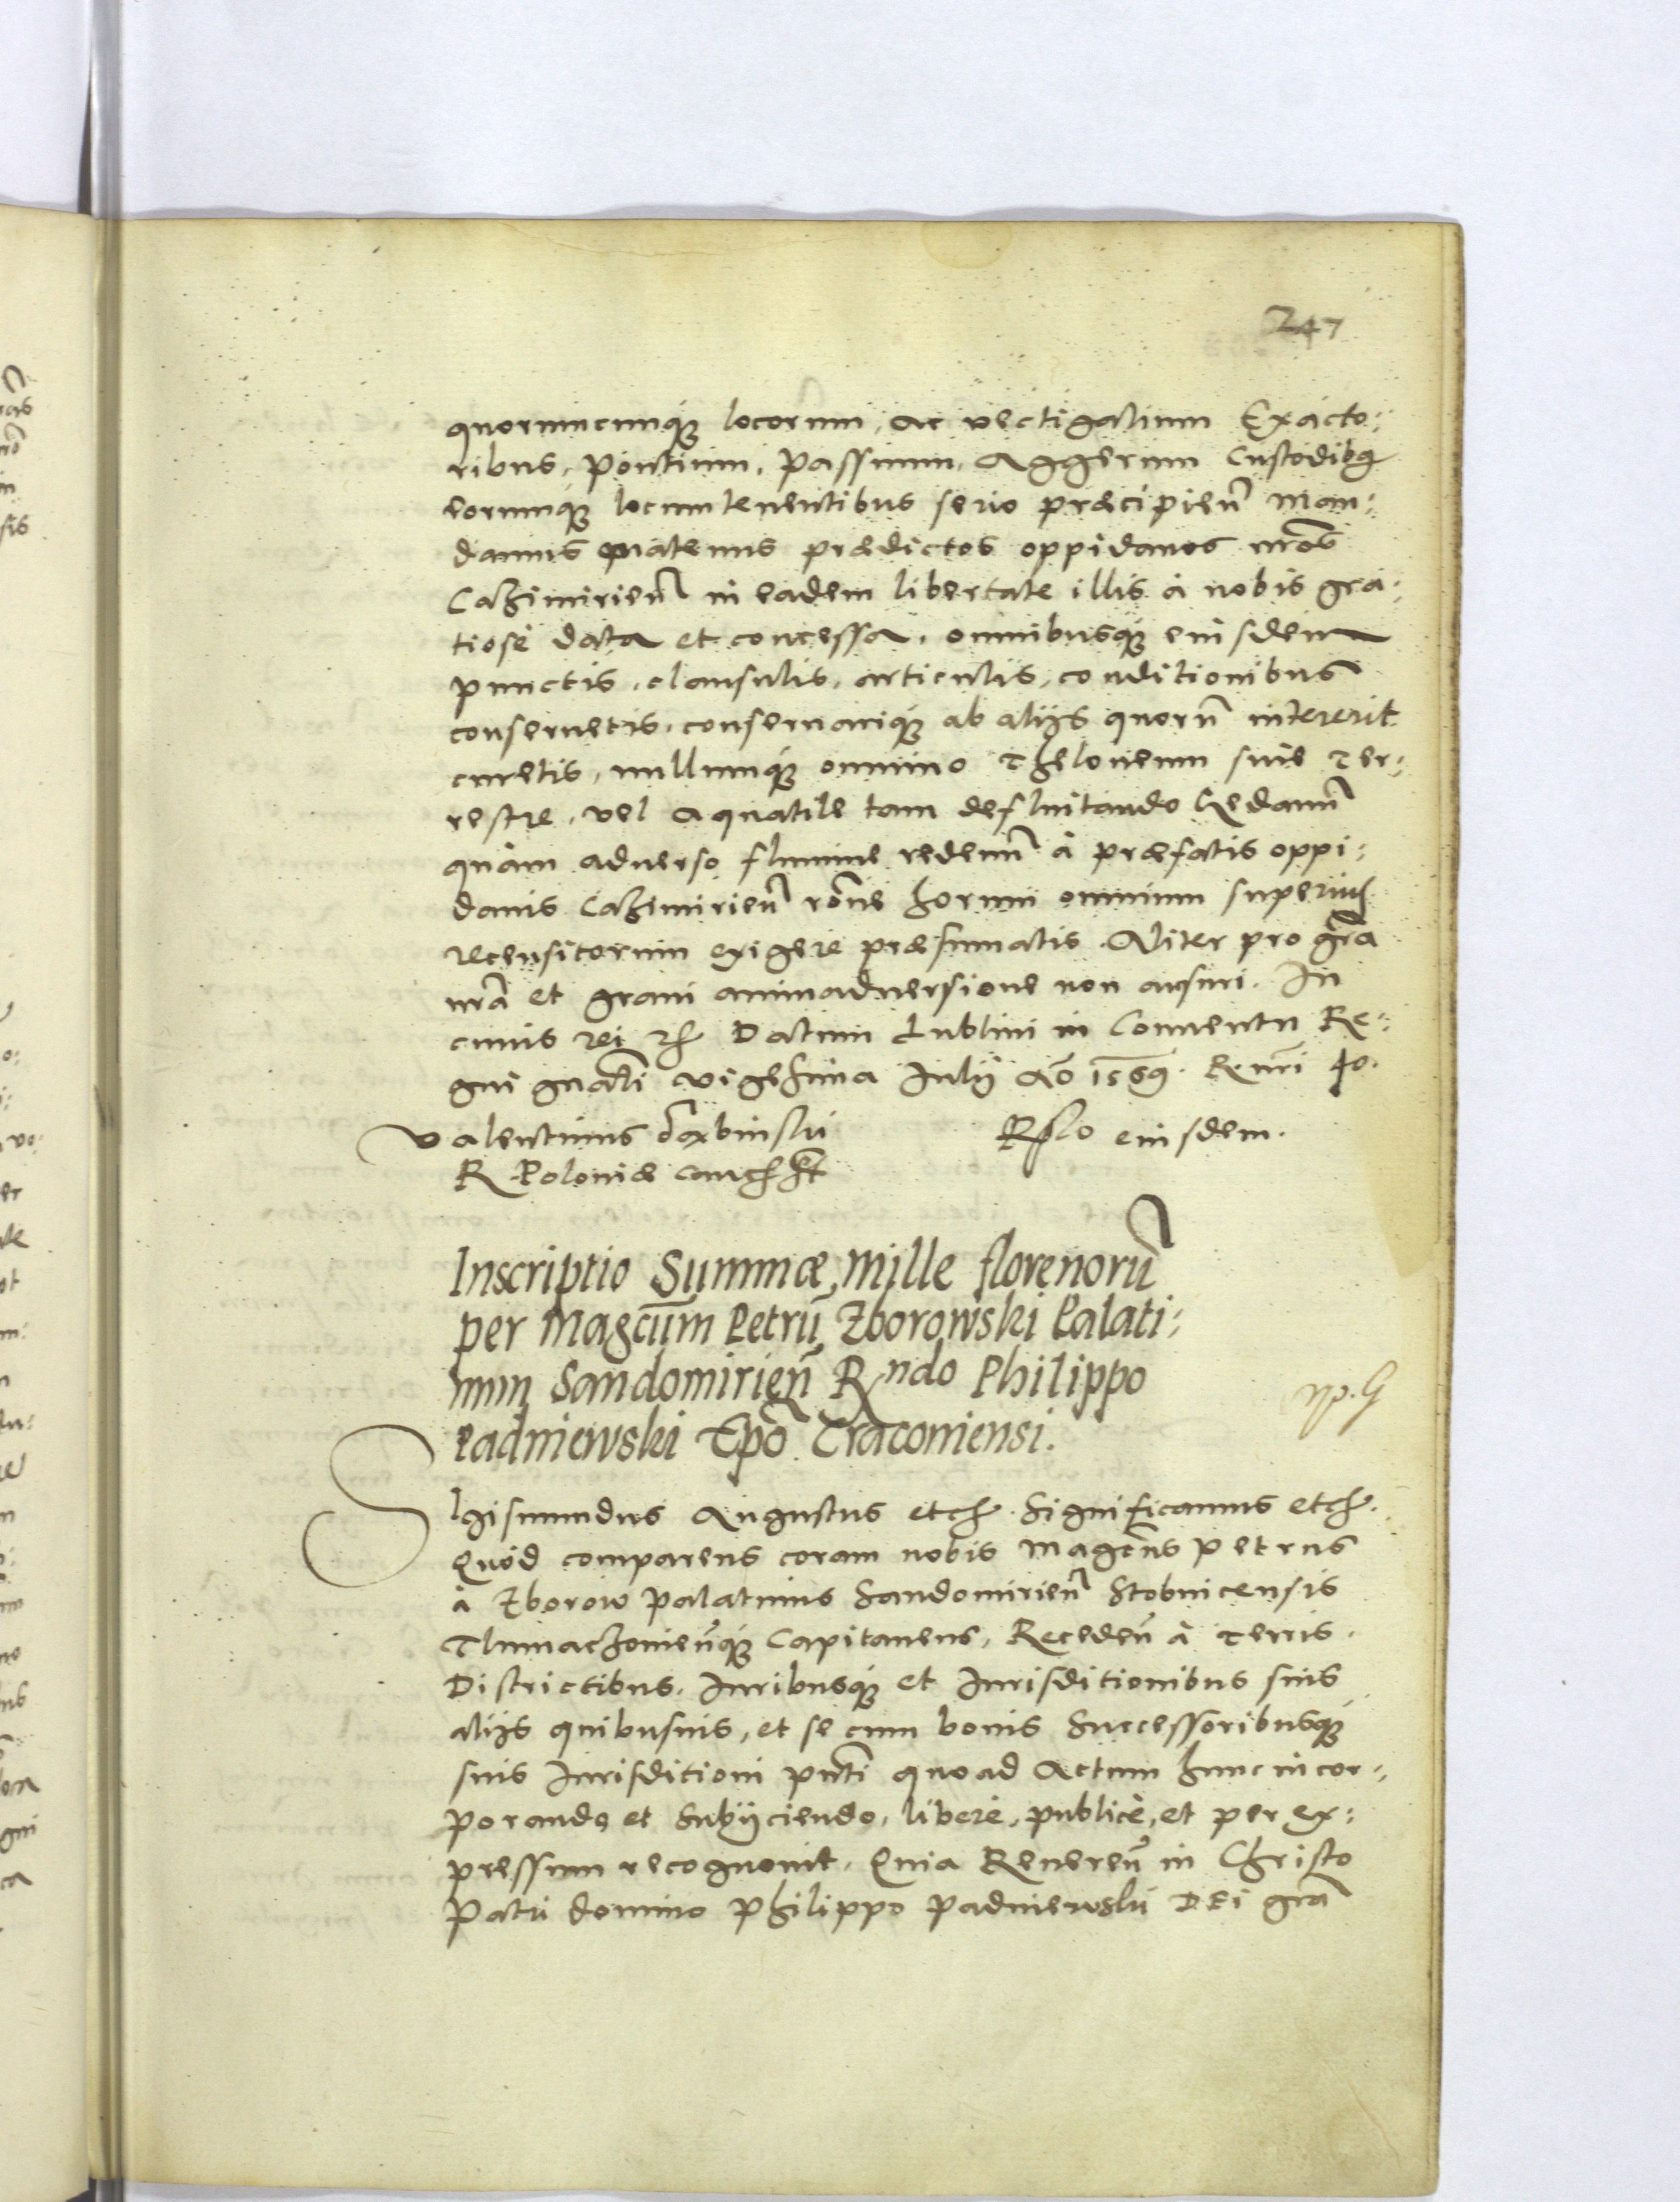 247
quorumcunq́ue locorum, ac vectigalium Exacto:
ribus, Pontium, Passuum, Aggerum Custodibq
eorumq́ue locumtenentibus serio præcipień man:
damus quatenus prædictos oppidanos nros̃
Cazimirień in eadem libertate illis à nobis gra:
tiosè data et concessa, omnibusq́ue eiusdem
punctis, clausulis, articulis, conditionibus
conseruetis, conseruariq́ue ab alijs quorũ intererit
curetis, nullumq́ue omnino Theloneum siue ter:
restre, vel aquatile tam defluitando Gedanũ
quàm aduerso flumine redeun̄ à præfatis oppi:
danis Cazimirień rōne horum omnium superius
recensitorum exigere præsumatis. Aliter pro gr̃a
nr̃a et graui animaduersione non ausuri. In
cuius rei etc Datum Lublini in Conuentu Re:
gni gn̄ali vigesima Iulij Aō 1569. R. nr̃i 40.
Valentinus Dãbinski
R. Poloniæ Canc. sst
Rlo eiusdem.
Inscriptio Summæ, mille florenorũ
per Magcūm Petrū Zborowski Palati:
num Sandomirień Rndo Philippo
Padniewski Epō Craconiensi.
np. G
SIgismundus Augustus etc. Significamus etc.
Quòd comparens coram nobis Magcũs Petrus
à Zborow Palatinus Sandomirień Stobnicensis
Tlumaczonień́que Capitaneus, Recedeñ à terris,
Districtibus, Iuribusq́ue et Iurisditionibus suis
alijs quibusuis, et se cum bonis Successoribusq́ue
suis Iurisditioni pn̄ti quoad Actum hunc incor:
porando et Subijciendo, liberè, publicè, et per ex:
pressum recognouit, Quia Reuereñ in Christo
Patri domino Philippo Padniewski DEi gr̃a